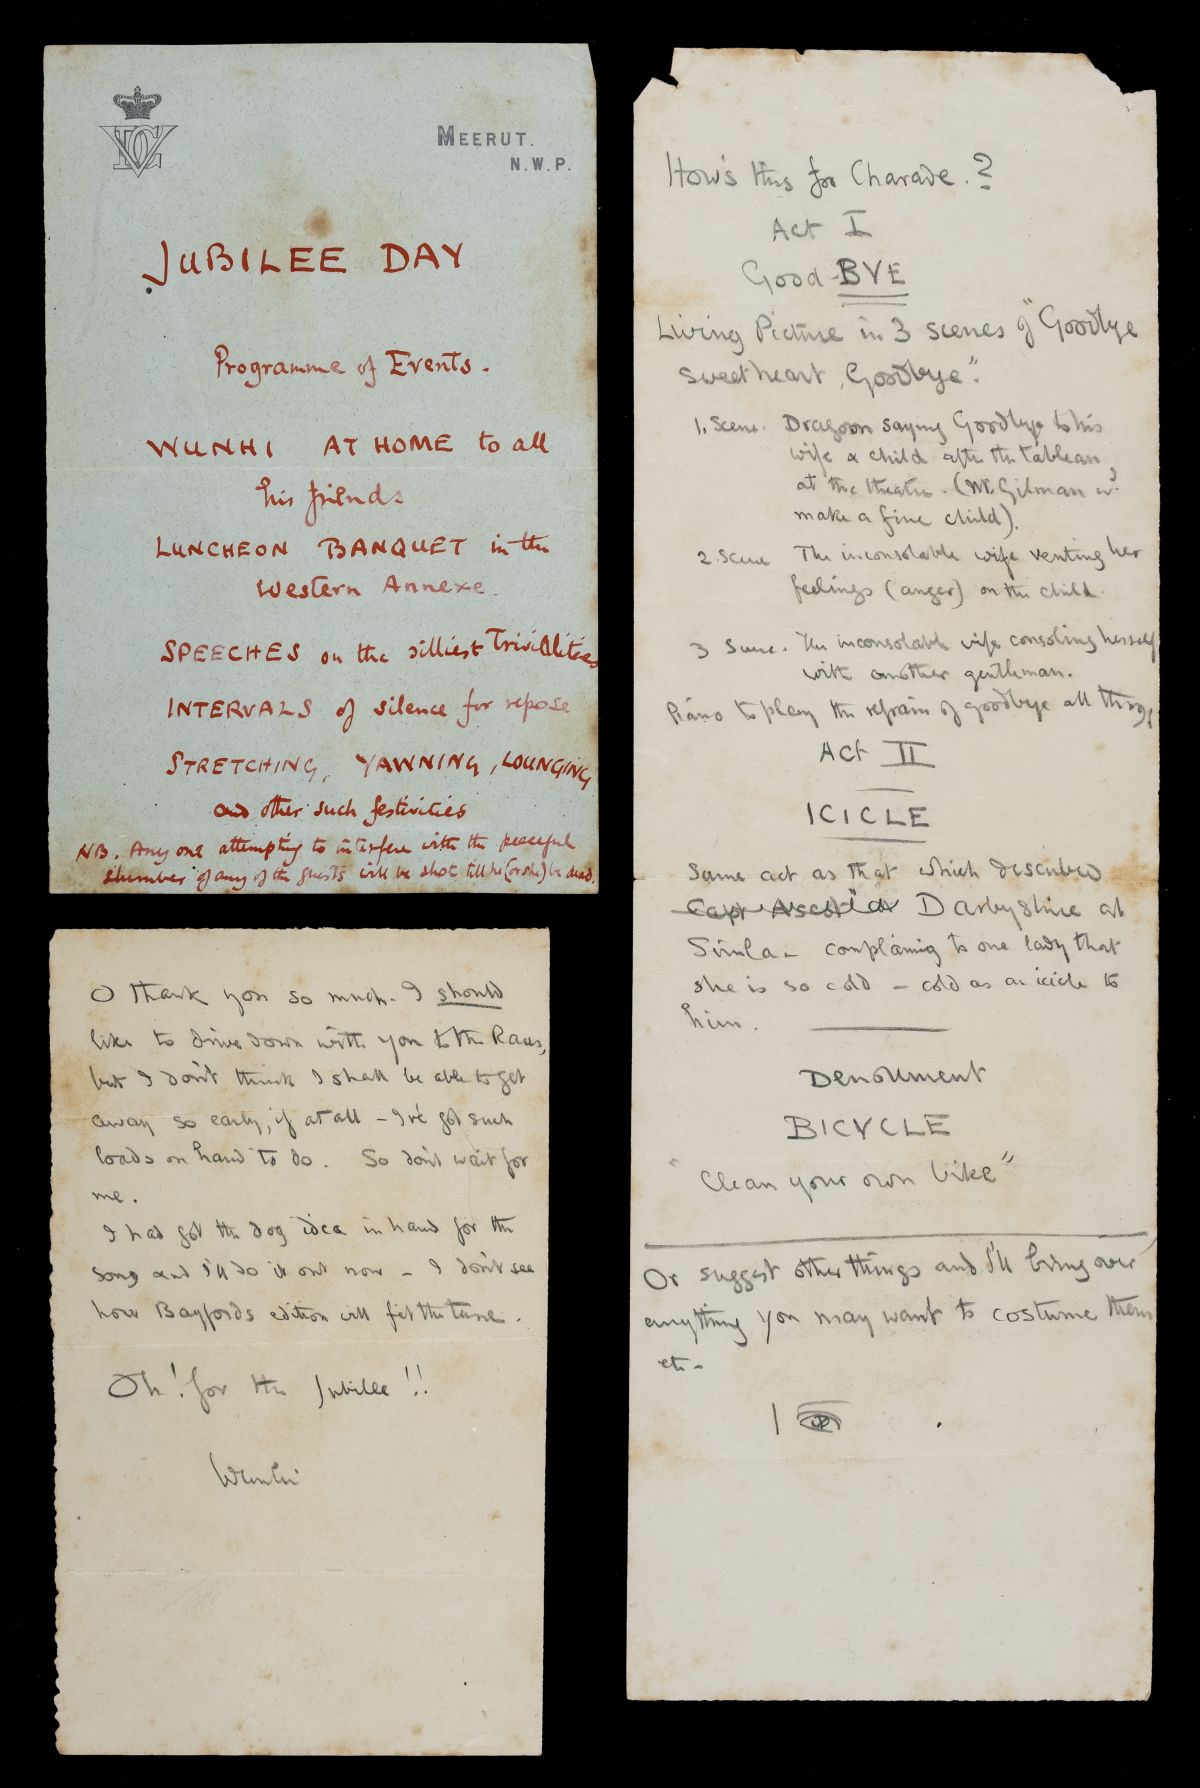 VDG
MEERUT.
N.W.P.
JUBILEE DAY
Programme of Events.
WUNHI AT HOME to all
his friends
LUNCHEON BANQUET in the
Western Annexe.
SPEECHES on the silliest Trivialities
INTERVALS of silence for repose
STRETCHING, YAWNING, LOUNGING
and other such festivities
NB. Any one attempting to interfere with the peaceful
slumber of any of the guests will be shot till he (or she) be dead.
O thank you so much. I should
like to drive down with you to the Races,
but I don't think I shall be able to get
away so early, if at all – I've got such
loads on hand to do. So don't wait for
me.
I had got the dog idea in hand for the
song and I'll do it out now – I don't see
how Bayfords edition will fit the tune.
Oh! for the Jubilee!!
Wunhi
How's this for Charade.?
Act I
Good-BYE
Living Picture in 3 scenes of "Goodbye
sweetheart, Goodbye".
1. Scene. Dragoon saying Goodbye to his
wife & child after the tableau,
at the theatre. (Mr. Gilman wd
make a fine child).
2. Scene The inconsolable wife venting her
feelings (anger) on the child.
3 Scene. The inconsolable wife consoling herself
with another gentleman.
Piano to play the refrain of goodbye all things
Act II
ICICLE
Same act as that which described
Darbyshire at
Simla – complaining to one lady that
she is so cold – cold as an icicle to
him.
Denoument
BICYCLE
"Clean your own bike"
Or suggest other things and I'll bring over
anything you may want to costume them
etc.